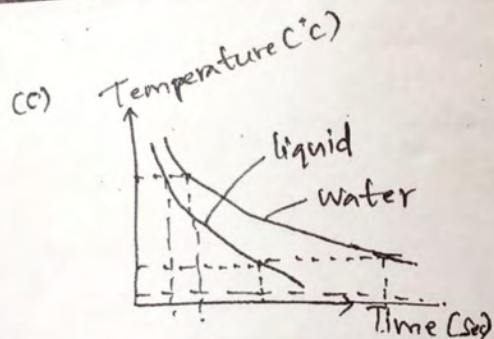 (C) Temperature (°C)
liquid
water
Time (sec)